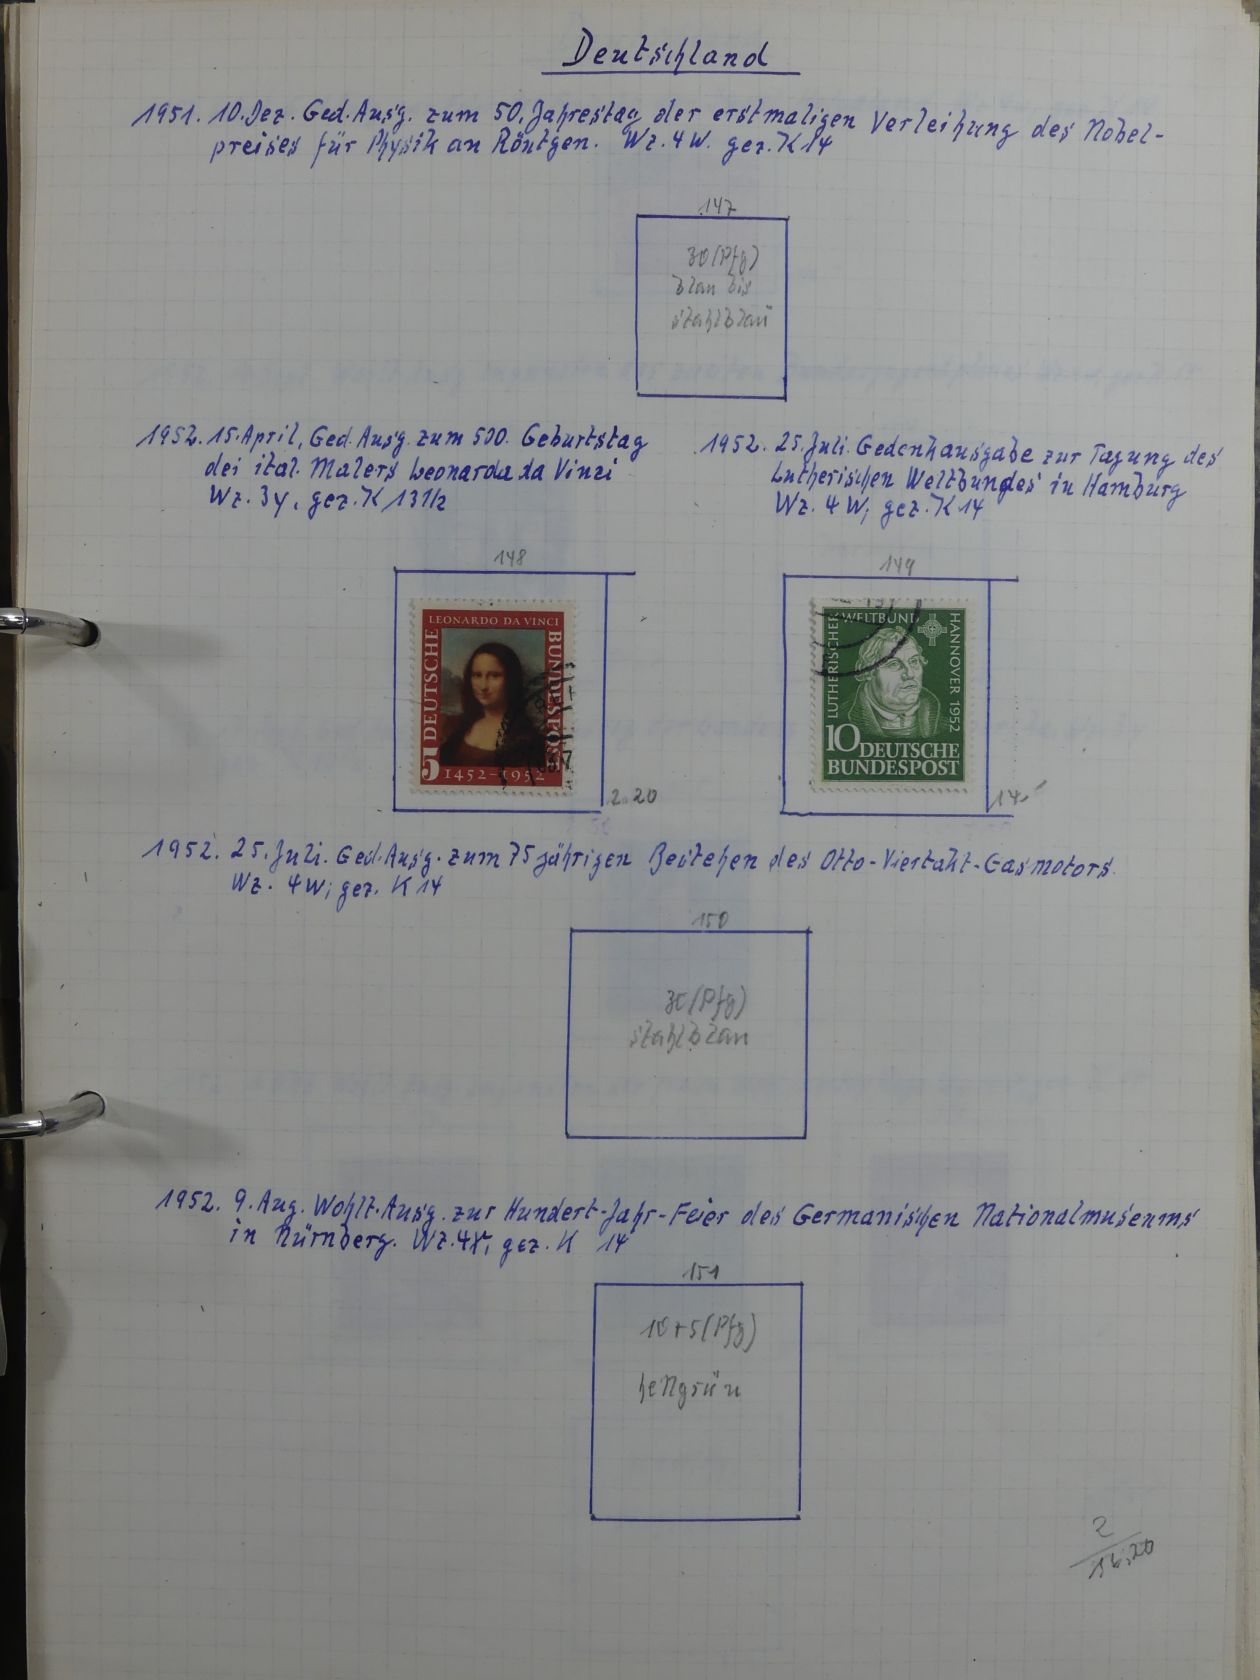 Deutschland
1951. 10. Dez. Ged. Ausg. zum 50. Jahrestag der erstmaligen Verleihung des Nobel-
preises für Physik an Röntgen. Wz. 4 W. gez. K 14
147
30 (Pfg)
blau bis
stahlblau
1952. 15. April, Ged. Ausg. zum 500. Geburtstag
des ital. Malers Leonarda da Vinci
Wz. 3y, gez. K 13 1/2
1952. 25. Juli. Gedenkausgabe zur Tagung des
Lutherischen Weltbundes in Hamburg
Wz. 4 W; gez. K 14
148
LEONARDO DA VINCI
DEUTSCHE
BUNDESPOST
5
1452-1952
2.20
149
LUTHERISCHER WELTBUND
HANNOVER 1952
10 DEUTSCHE
BUNDESPOST
14.-
1952. 25. Juli. Ged. Ausg. zum 75 jährigen Bestehen des Otto-Viertakt-Gasmotors.
Wz. 4 W; gez. K 14
150
30 (Pfg)
stahlblau
1952. 9. Aug. Wohlt. Ausg. zur Hundert-Jahr-Feier des Germanischen Nationalmuseums
in Nürnberg. gez. K 14
151
10+5 (Pfg)
hellgrün
2
16,20